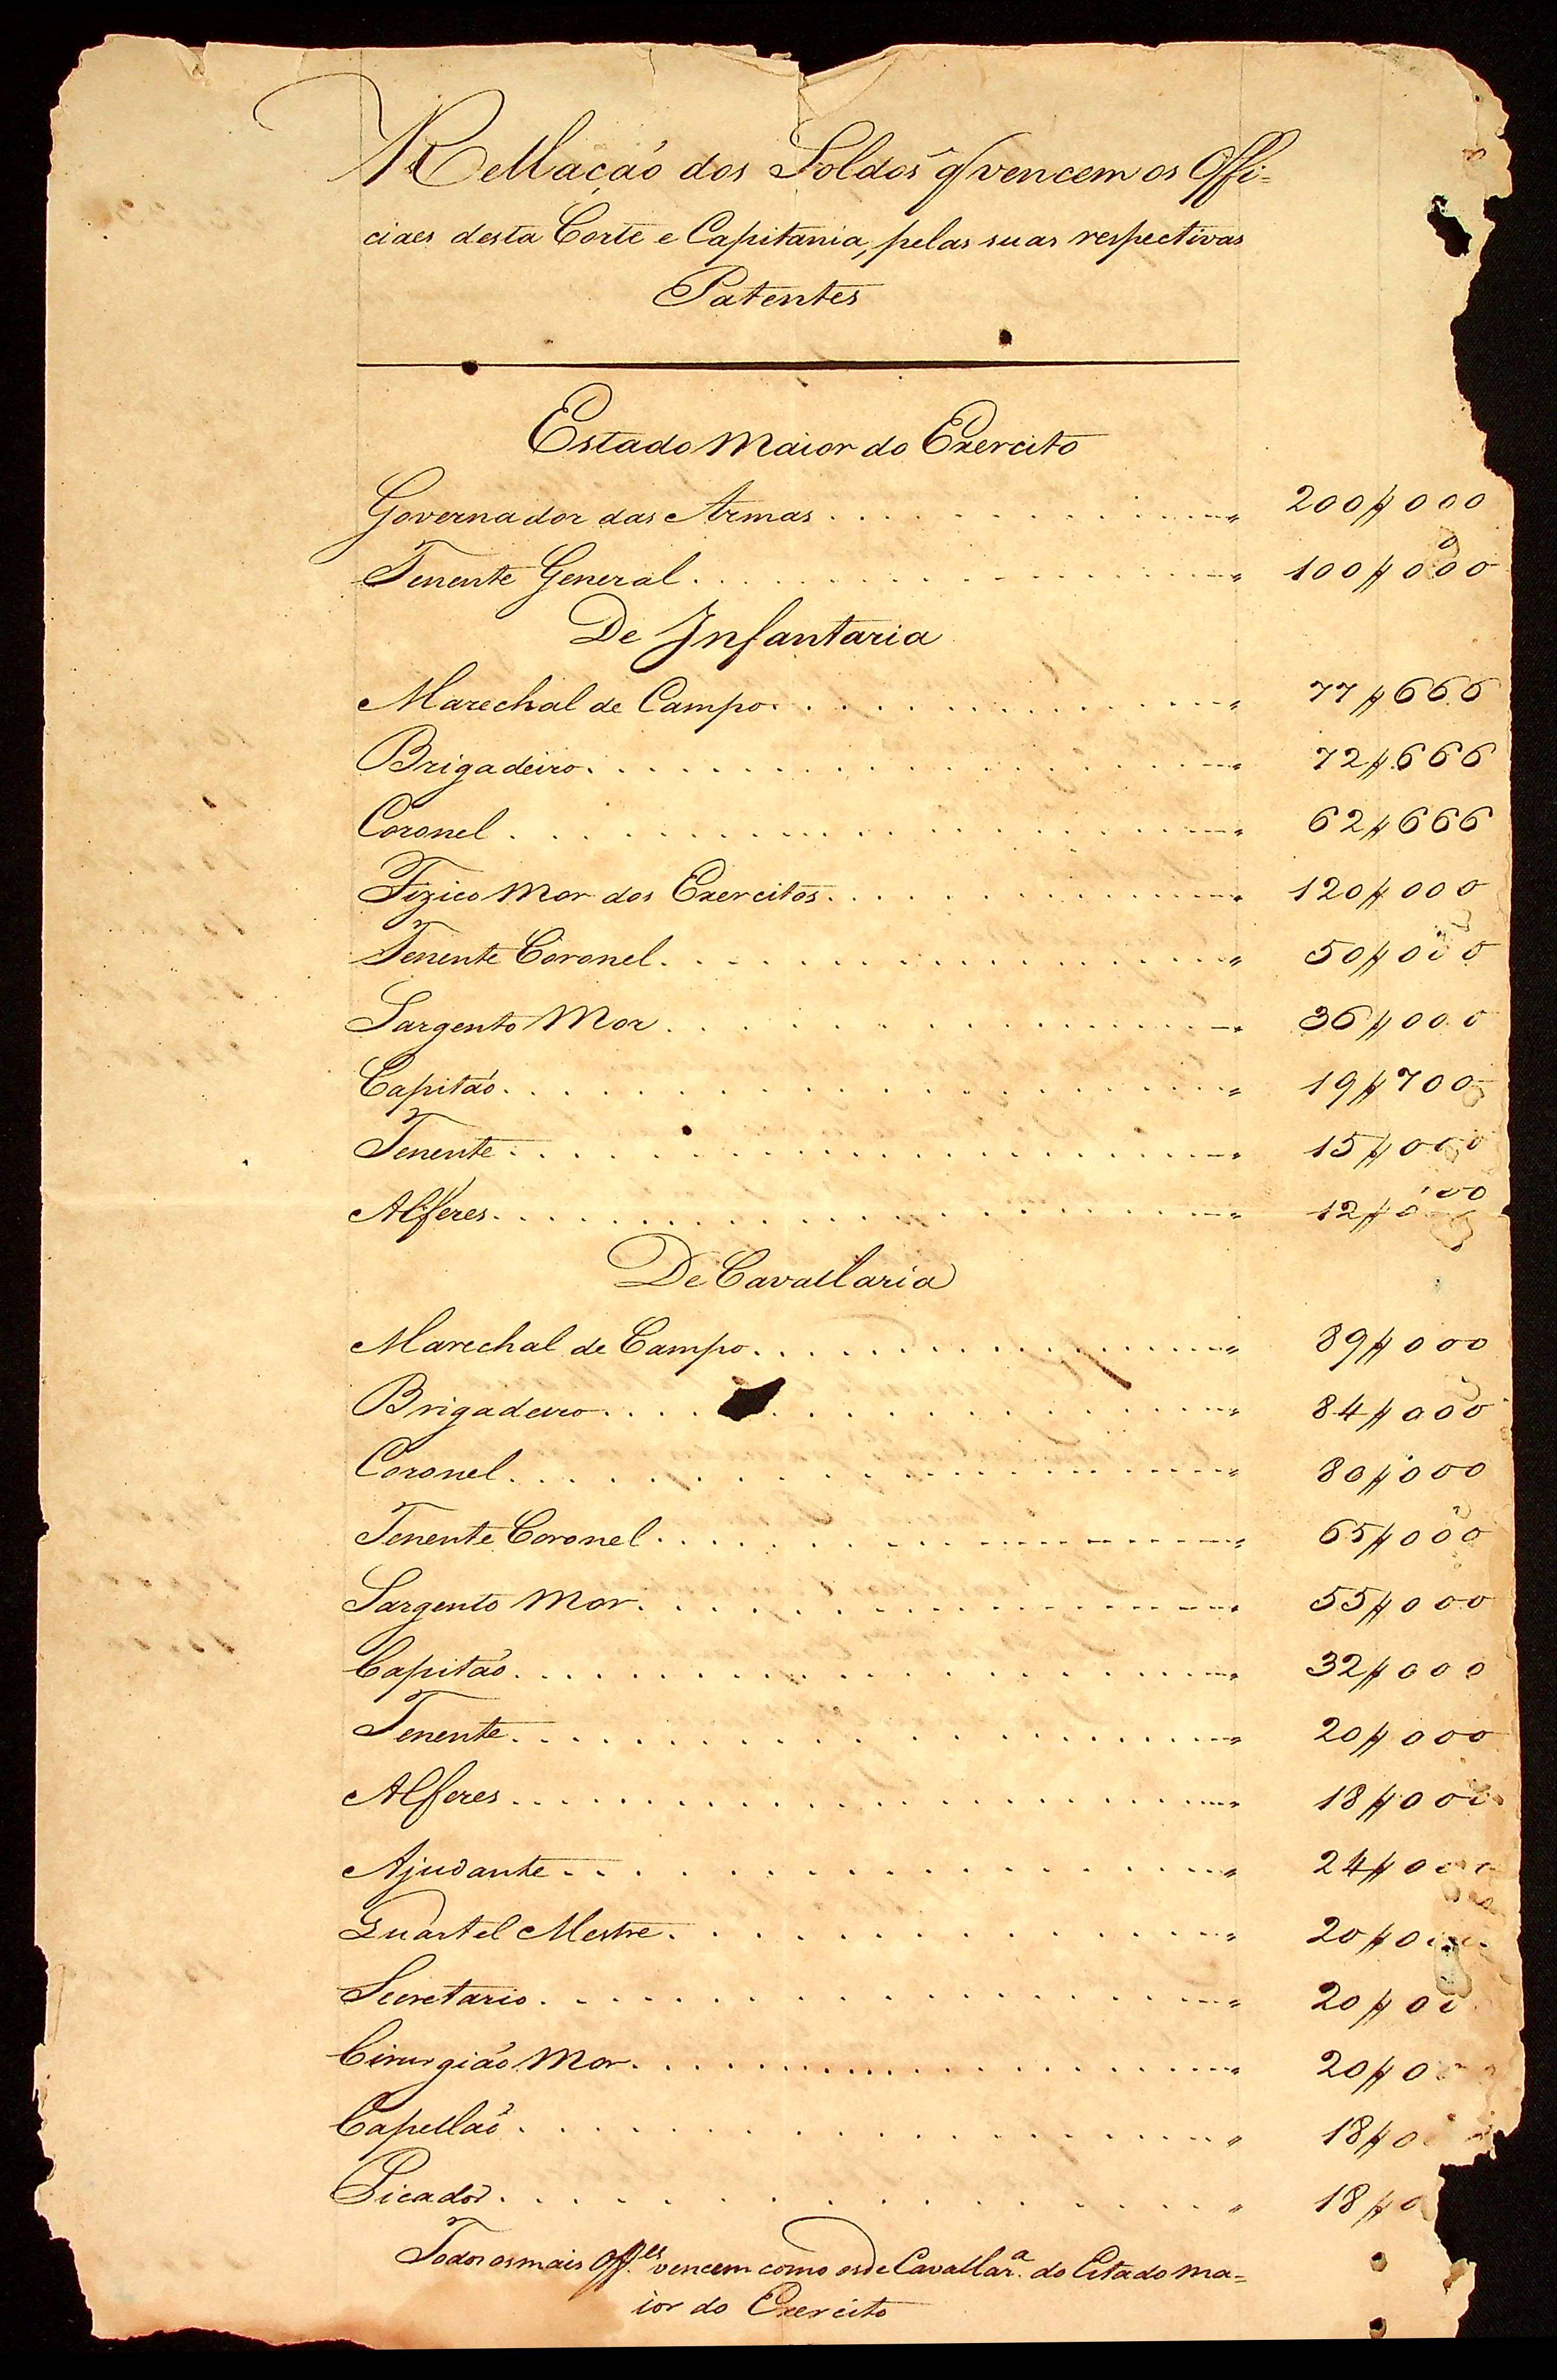 Rellação dos Soldos q̃ vencem os Offi-
ciaes desta Corte e Capitania, pelas suas respectivas
Patentes
Estado Maior do Exercito
Governador das Armas . . . . . . . . . . . . " 200$000
Tenente General . . . . . . . . . . . . " 100$000
De Infantaria
Marechal de Campo . . . . . . . . . . . . " 77$666
Brigadeiro . . . . . . . . . . . . " 72$666
Coronel . . . . . . . . . . . . " 62$666
Fizico Mor dos Exercitos . . . . . . . . . . . . " 120$000
Tenente Coronel . . . . . . . . . . . . " 50$000
Sargento Mor . . . . . . . . . . . . " 36$000
Capitão . . . . . . . . . . . . " 19$700
Tenente . . . . . . . . . . . . " 15$000
Alferes . . . . . . . . . . . . " 12$000
De Cavallaria
Marechal de Campo . . . . . . . . . . . . " 89$000
Brigadeiro . . . . . . . . . . . . " 84$000
Coronel . . . . . . . . . . . . " 80$000
Tenente Coronel . . . . . . . . . . . . " 65$000
Sargento Mor . . . . . . . . . . . . " 55$000
Capitão . . . . . . . . . . . . " 32$000
Tenente . . . . . . . . . . . . " 20$000
Alferes . . . . . . . . . . . . " 18$000
Ajudante . . . . . . . . . . . . " 24$000
Quartel Mestre . . . . . . . . . . . . " 20$0
Secretario . . . . . . . . . . . . " 20$00
Cirurgião Mor . . . . . . . . . . . . " 20$0
Capellão . . . . . . . . . . . . " 18$0
Picador . . . . . . . . . . . . " 18$0
Todos os mais Off.es vencem como os de Cavallar.a do Estado Ma-
ior do Exercito